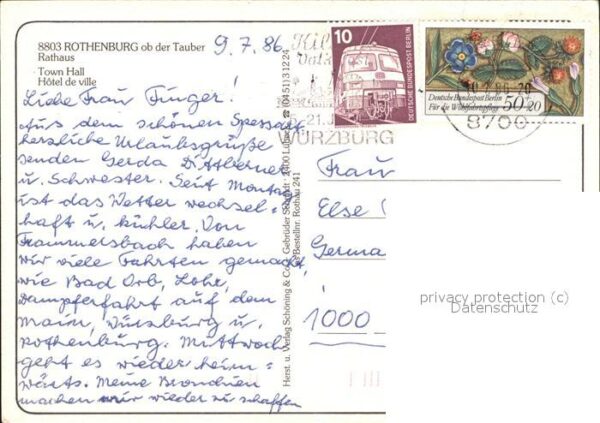 8803 ROTHENBURG ob der Tauber
Rathaus
Town Hall
Hôtel de ville
9.7.86
Liebe Frau Finger!
Aus dem schönen Spessart
herzliche Urlaubsgrüße
senden Gerda
u. Schwester. Seit Montag
ist das Wetter wechsel-
haft u. kühler. Von
Frammersbach haben
wir viele Fahrten gemacht,
wie Bad Orb, Lohr,
Dampferfahrt auf dem
Main, Würzburg u.
Rothenburg. Mittwoch
geht es wieder heim=
wärts. Meine Bronchien
machen mir wieder zu schaffen
Herst. u. Verlag Schöning & Co + Gebrüder Schmidt · 2400 Lübeck ☎ (0451) 31224
Bestellnr. Rothau 241
10
DEUTSCHE BUNDESPOST BERLIN
Deutsche Bundespost Berlin
Für die Wohlfahrtspflege 50+20
WÜRZBURG
8700
Frau
Else
Germa
1000
privacy protection (c)
Datenschutz